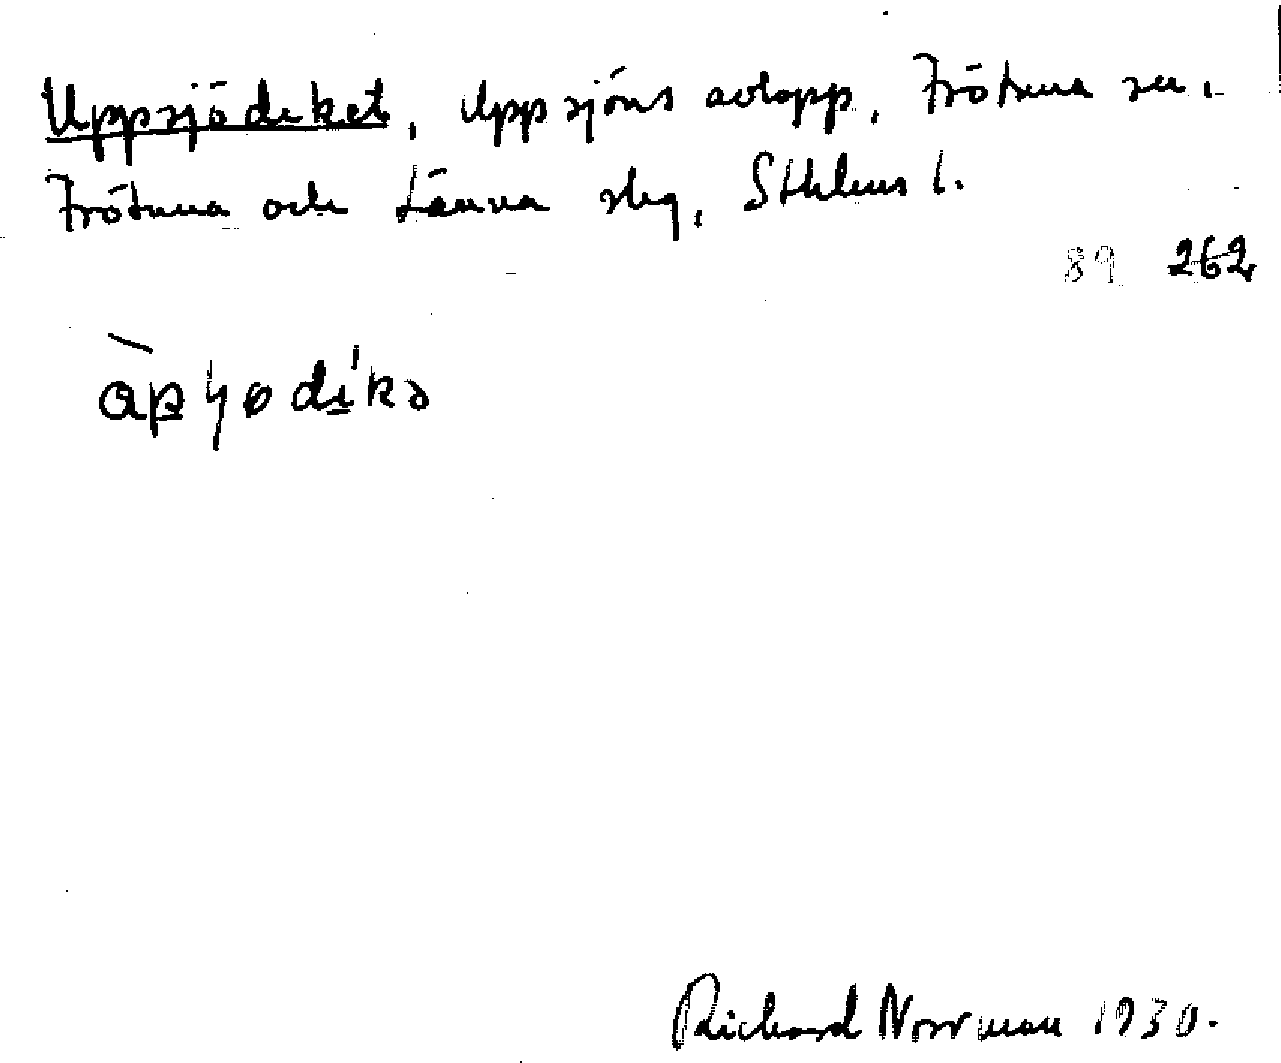 Uppsjödiket, Uppsjöns avlopp, Frötuna sn.
Frötuna och Länna slg, Sthlms l.
89 262
àpɧødi̱'kə
Richard Norrman 1930.